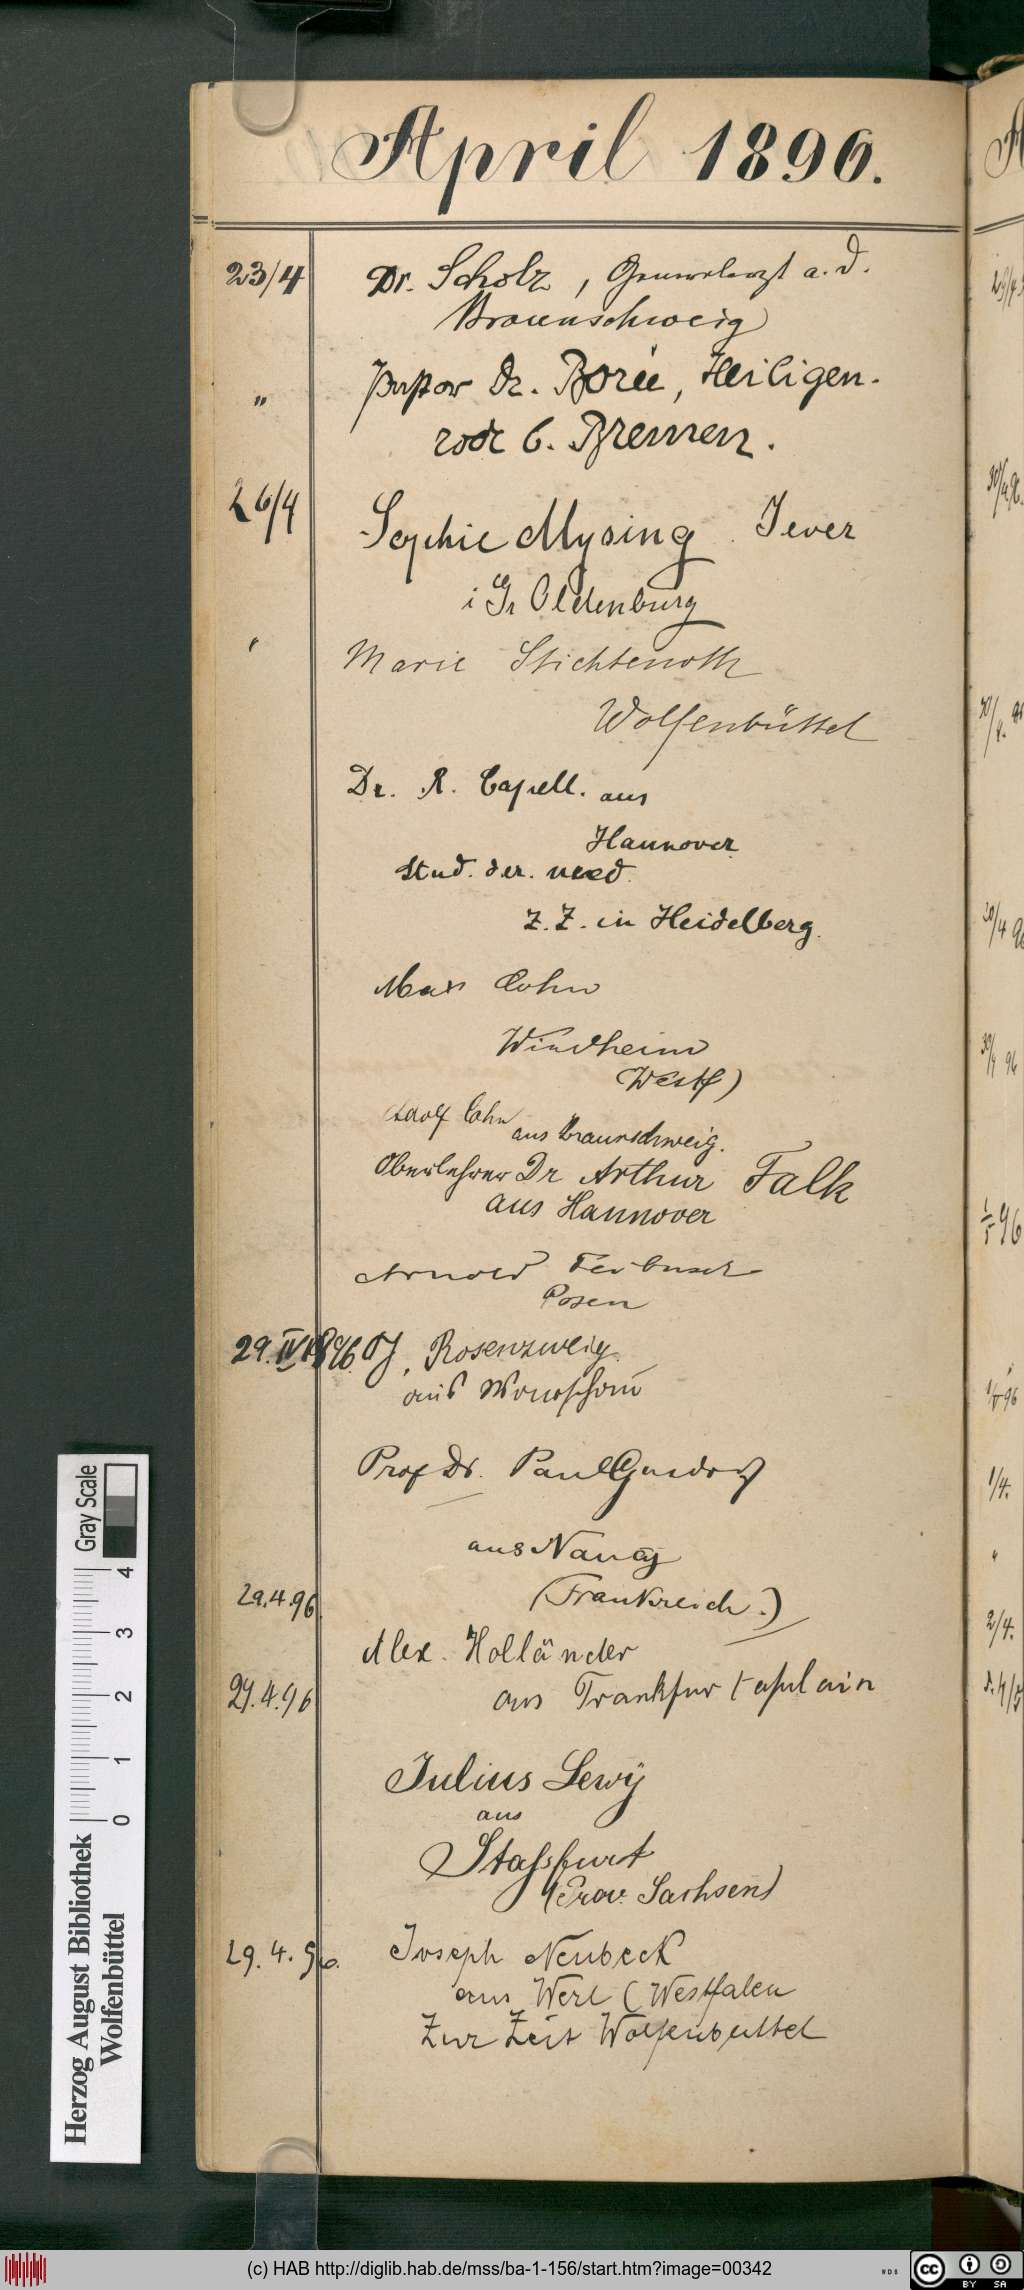 April 1896.
23/4 Dr. Scholz, Generalarzt a. D.
Braunschweig
" Pastor Dr. Borée, Heiligen-
rode b. Bremen.
26/4 Sophie Mysing. Jever
i Gr Oldenburg
" Marie Stichtenoth
Wolfenbüttel
Dr. R. Capell. aus
Hannover
stud. der. med.
z. Z. in Heidelberg.
Max Cohn
Windheim
(Westf)
Adolf Cohn
aus Braunschweig.
Oberlehrer Dr Arthur Falk
aus Hannover
Arnold
Posen
29. IV 1896. J. Rosenzweig
aus Warschau
Prof Dr. Paul
aus Nancy
(Frankreich.)
29.4.96.
Alex. Holländer
29.4.96 aus Frankfurt
Julius Lewÿ
aus
Stassfurt
(Prov. Sachsen)
29.4.96. Joseph Neubeck
aus Werl (Westfalen
Zur Zeit Wolfenbuttel
Gray Scale
4
3
2
1
0
Herzog August Bibliothek
Wolfenbüttel
(c) HAB http://diglib.hab.de/mss/ba-1-156/start.htm?image=00342
WDB
cc BY SA